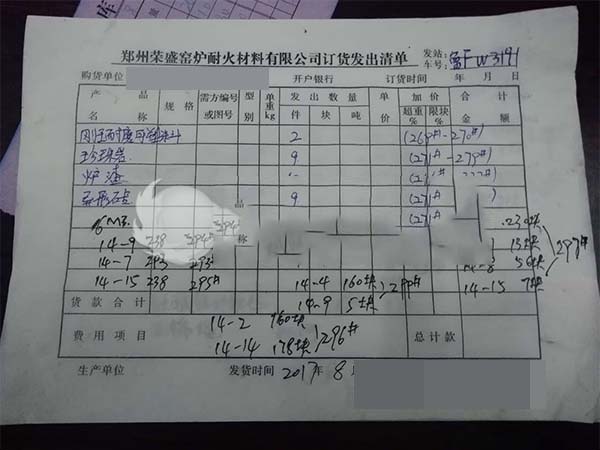 郑州荣盛窑炉耐火材料有限公司订货发出清单
发站:
车号: 鲁F W3191
购货单位 开户银行 订货时间 年 月 日
产品名称 规格 需方编号或图号 型别 单重kg 发出数量 件 块 吨 单价 加价 超重% 限块% 合计 金额
刚玉耐磨可塑料 2 (269# -270#)
珍珠岩 9 (271# -279#)
炉渣
弧形砧 9 (271#
230块
14-9 238 294# 13块
14-7 293 293# 56块 297#
14-15 238 295# 14-4 160块 299# 14-15 7块
货款合计 14-9 5块
费用项目 14-2 160块 296# 总计款
14-14 178块
生产单位 发货时间 2017年8